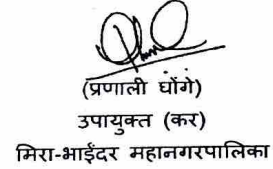 (प्रणाली घोंगे)
उपायुक्त (कर)
मिरा-भाईंदर महानगरपालिका